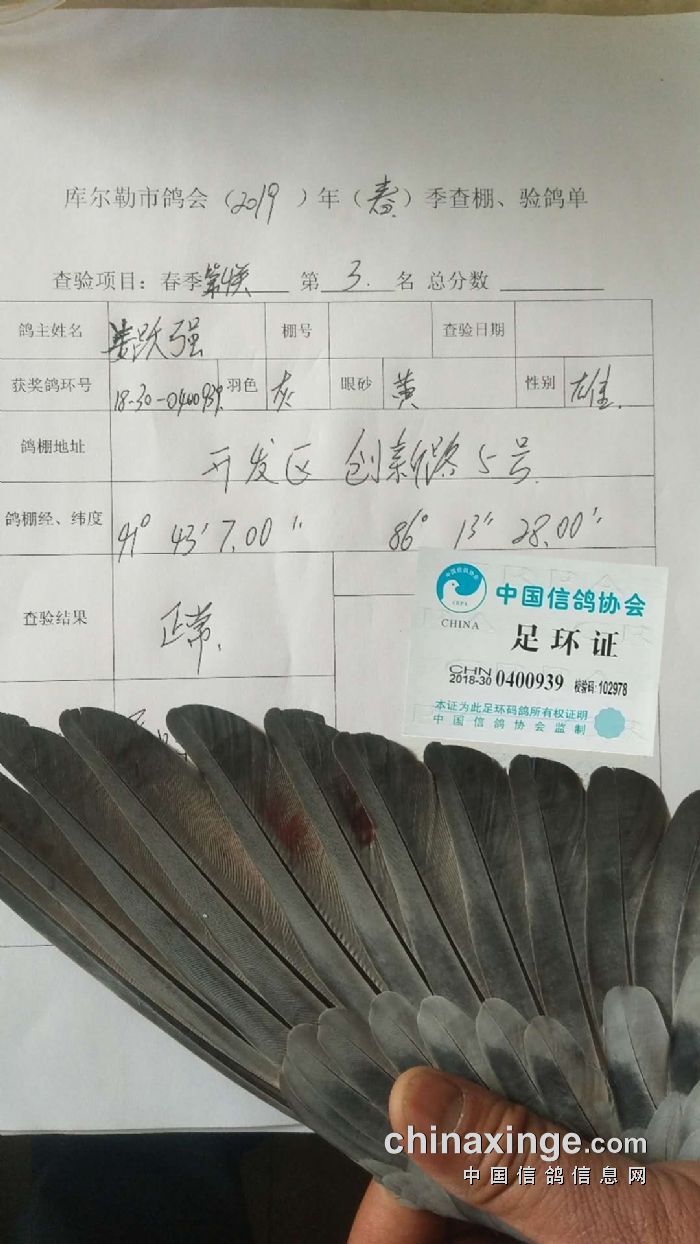 库尔勒市鸽会（2019）年（春）季查棚、验鸽单
查验项目：春季 第 3. 名 总分数
鸽主姓名 娄跃强 棚号 查验日期
获奖鸽环号 18-30-0400939 羽色 灰 眼砂 黄 性别 雄.
鸽棚地址 开发区 创新路5号.
鸽棚经、纬度 41° 43′ 7.00″ 86° 13″ 28.00″
查验结果 正常.
中国信鸽协会
CHINA
足环证
CHN
2018-30 0400939 校验码:102978
本证为此足环码鸽所有权证明
中国信鸽协会监制
chinaxinge.com
中国信鸽信息网